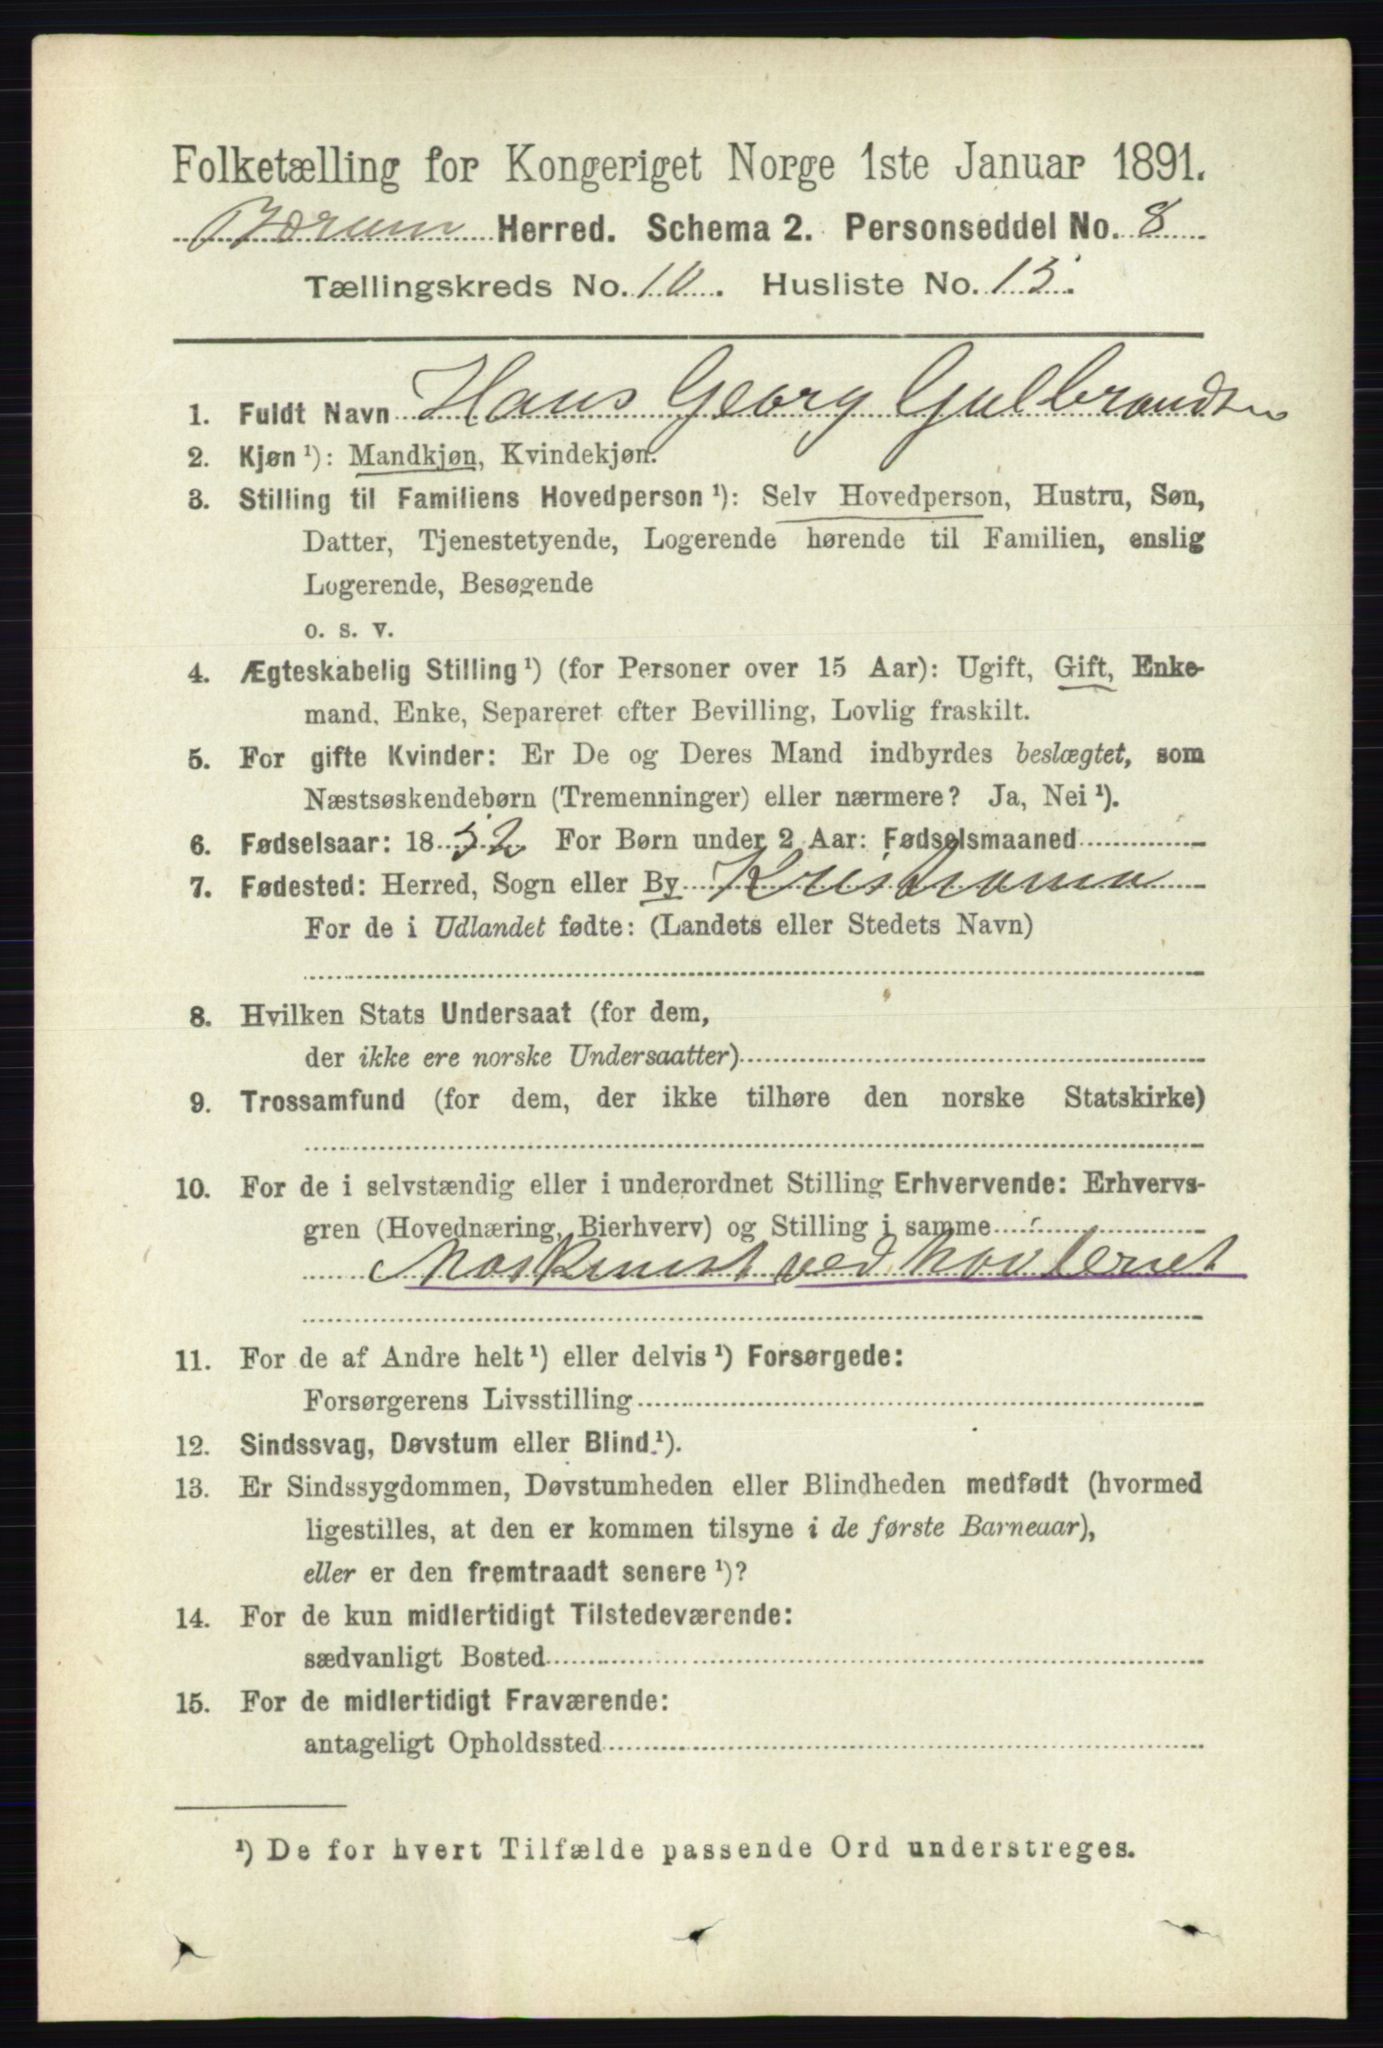 Folketælling for Kongeriget Norge 1ste Januar 1891.
Bærum Herred. Schema 2. Personseddel No. 8
Tællingskreds No. 10. Husliste No. 13.
1. Fuldt Navn Hans Georg Gulbrandsen
2. Kjøn ¹): Mandkjøn, Kvindekjøn.
3. Stilling til Familiens Hovedperson ¹): Selv Hovedperson, Hustru, Søn,
Datter, Tjenestetyende, Logerende hørende til Familien, enslig
Logerende, Besøgende
o. s. v.
4. Ægteskabelig Stilling ¹) (for Personer over 15 Aar): Ugift, Gift, Enke-
mand, Enke, Separeret efter Bevilling, Lovlig fraskilt.
5. For gifte Kvinder: Er De og Deres Mand indbyrdes beslægtet, som
Næstsøskendebørn (Tremenninger) eller nærmere? Ja, Nei ¹).
6. Fødselsaar: 1852 For Børn under 2 Aar: Fødselsmaaned
7. Fødested: Herred, Sogn eller By Kristiania
For de i Udlandet fødte: (Landets eller Stedets Navn)
8. Hvilken Stats Undersaat (for dem,
der ikke ere norske Undersaatter)
9. Trossamfund (for dem, der ikke tilhøre den norske Statskirke)
10. For de i selvstændig eller i underordnet Stilling Erhvervende: Erhvervs-
gren (Hovednæring, Bierhverv) og Stilling i samme
Maskinist ved høvleriet
11. For de af Andre helt ¹) eller delvis ¹) Forsørgede:
Forsørgerens Livsstilling
12. Sindssvag, Døvstum eller Blind ¹).
13. Er Sindssygdommen, Døvstumheden eller Blindheden medfødt (hvormed
ligestilles, at den er kommen tilsyne i de første Barneaar),
eller er den fremtraadt senere ¹)?
14. For de kun midlertidigt Tilstedeværende:
sædvanligt Bosted
15. For de midlertidigt Fraværende:
antageligt Opholdssted
¹) De for hvert Tilfælde passende Ord understreges.